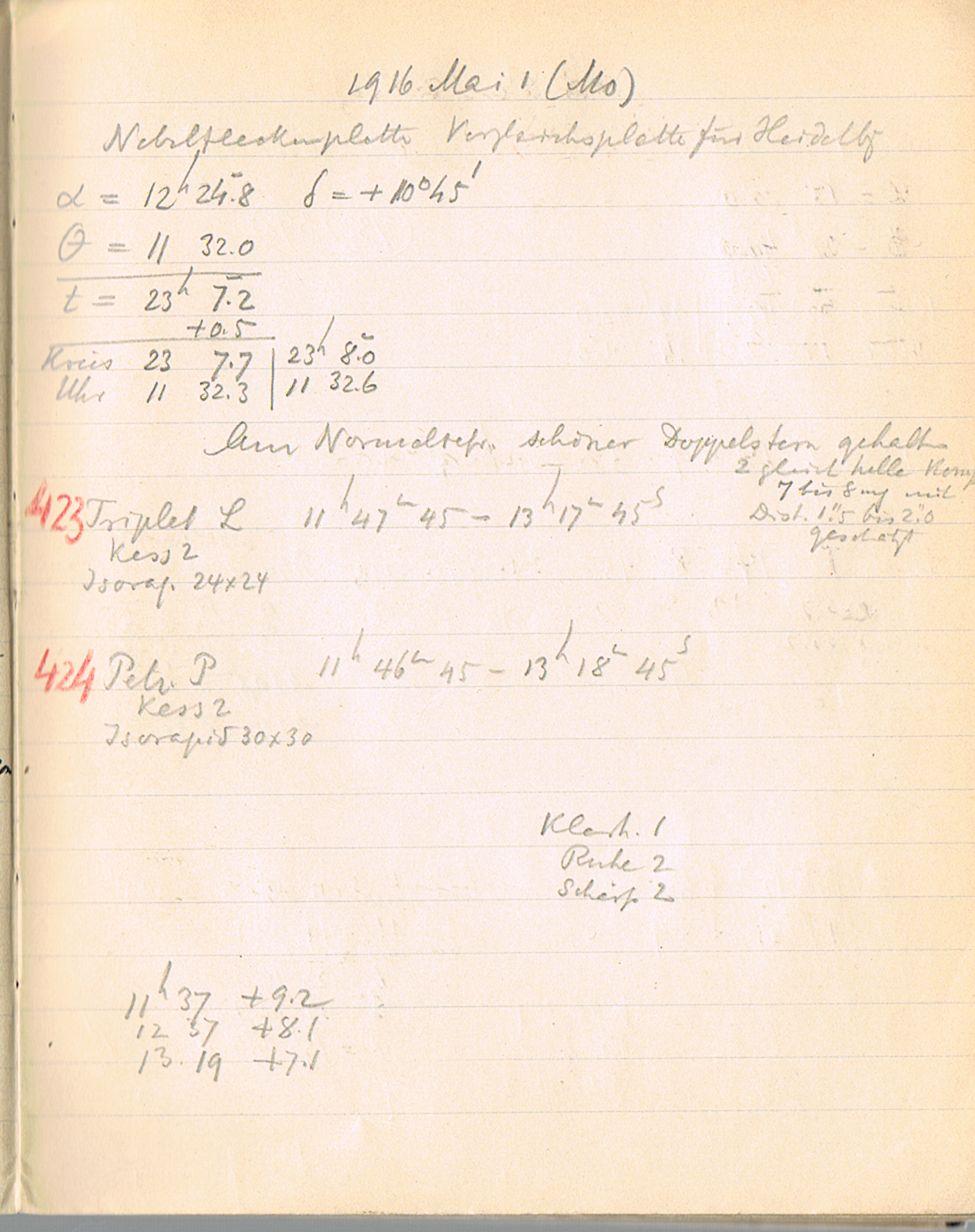 1916 Mai 1 (Mo)
Nebelfleckenplatte Vergleichsplatte für Heidelbg
α = 12h 24m.8 δ = +10° 45'
θ = 11 32.0
t = 23h 7m.2
+0.5
Kreis 23 7.7 | 23h 8m.0
Uhr 11 32.3 | 11 32.6
Am Normalrefr. schöner Doppelstern gehalten
2 gleich helle Komp
7 bis 8 mg mit
Dist. 1".5 bis 2".0
geschätzt
423 Triplet L 11h 47m 45 – 13h 17m 45s
Kess 2
Isorap. 24x24
424 Petz. P 11h 46m 45 – 13h 18m 45s
Kess 2
Isorapid 30x30
Klarh. 1
Ruhe 2
Schärf. 2
11h 37 +9.2
12 37 +8.1
13 19 +7.1